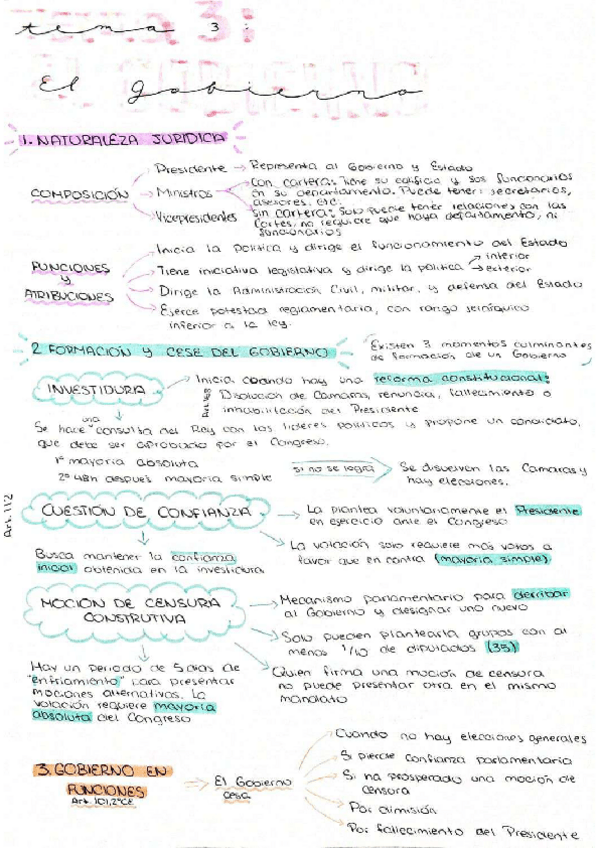 tema 3:
El Gobierno
1. NATURALEZA JURÍDICA
COMPOSICIÓN
Presidente → Representa al Gobierno y Estado
Ministros
Con cartera: Tiene su edificio y sus funcionarios
en su departamento. Puede tener: secretarios,
asesores, etc.
Sin cartera: Solo puede tener relaciones con las
Cortes, no requiere que haya departamento, ni
funcionarios
Vicepresidentes
FUNCIONES
y
ATRIBUCIONES
Inicia la Política y dirige el funcionamiento del Estado
Tiene iniciativa legislativa y dirige la política
→ interior
→ exterior
Dirige la Administración Civil, militar, y defensa del Estado
Ejerce potestad reglamentaria, con rango jerárquico
inferior a la ley.
2 FORMACIÓN y CESE DEL GOBIERNO
Existen 3 momentos culminantes
de formación de un Gobierno
INVESTIDURA
Inicia cuando hay una reforma constitucional:
Disolución de Cámaras, renuncia, fallecimiento o
inhabilitación del Presidente
Se hace una consulta del Rey con los líderes políticos y propone un candidato,
que debe ser aprobado por el Congreso.
1º mayoría absoluta
2º 48h después mayoría simple
si no se logra
Se disuelven las Cámaras y
hay elecciones.
Art. 112
CUESTIÓN DE CONFIANZA
La plantea voluntariamente el Presidente
en ejercicio ante el Congreso
La votación solo requiere más votos a
favor que en contra (mayoría simple)
Busca mantener la confianza
inicial obtenida en la investidura
MOCIÓN DE CENSURA
CONSTRUTIVA
Mecanismo parlamentario para derribar
al Gobierno y designar uno nuevo
Solo pueden plantearla grupos con al
menos 1/10 de diputados (35)
Quien firma una moción de censura
no puede presentar otra en el mismo
mandato
Hay un periodo de 5 días de
"enfriamiento" para presentar
mociones alternativas. La
votación requiere mayoría
absoluta del Congreso
3. GOBIERNO EN
FUNCIONES
Art. 101,2ºCE
El Gobierno
cesa
Cuando no hay elecciones generales
Si pierde confianza parlamentaria
Si ha prosperado una moción de
censura
Por dimisión
Por fallecimiento del Presidente